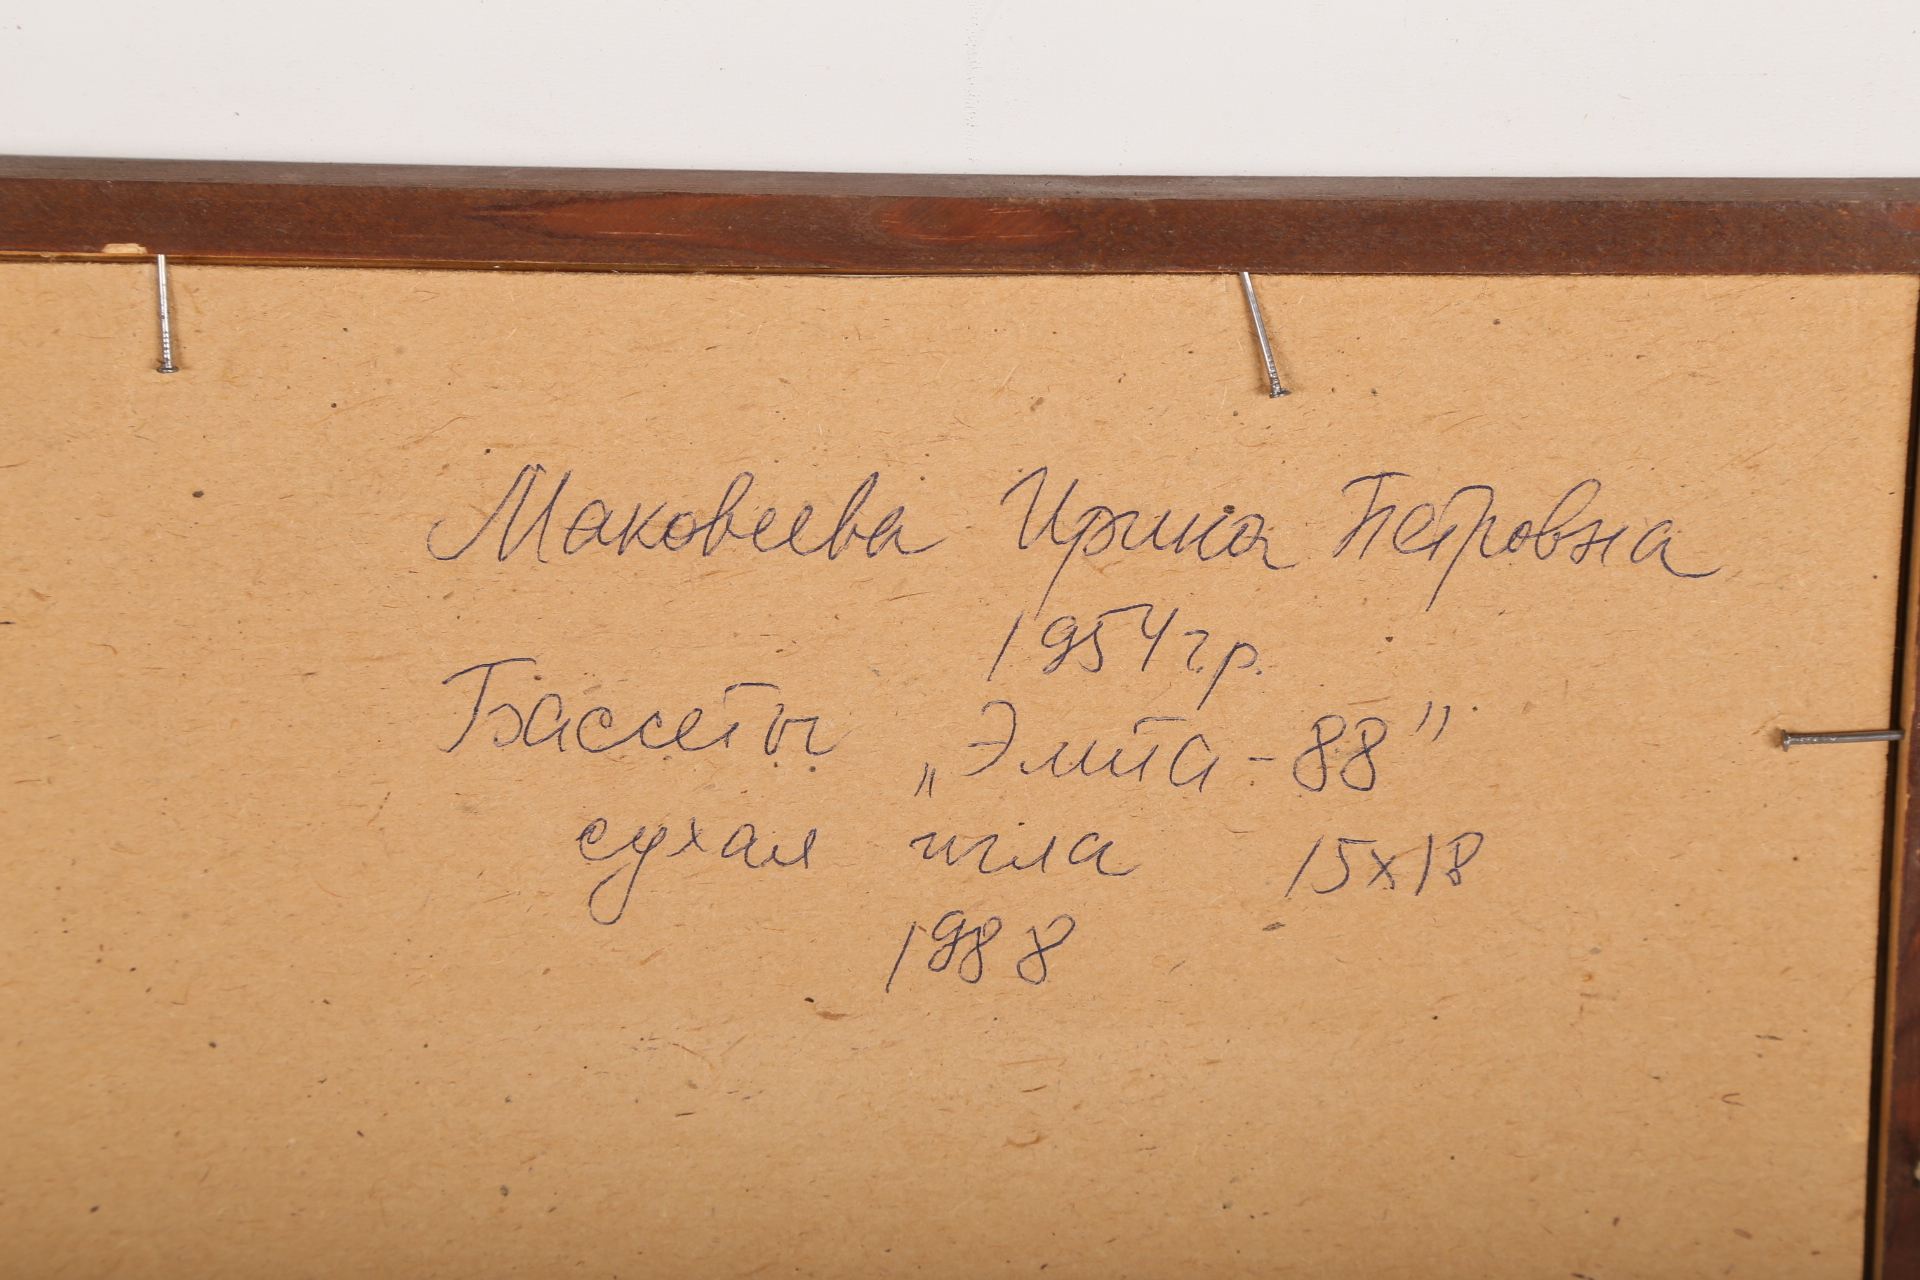 Маковеева Ирина Петровна
1954 г.р.
Бассеты „Элита-88”
сухая игла 15х18
1988